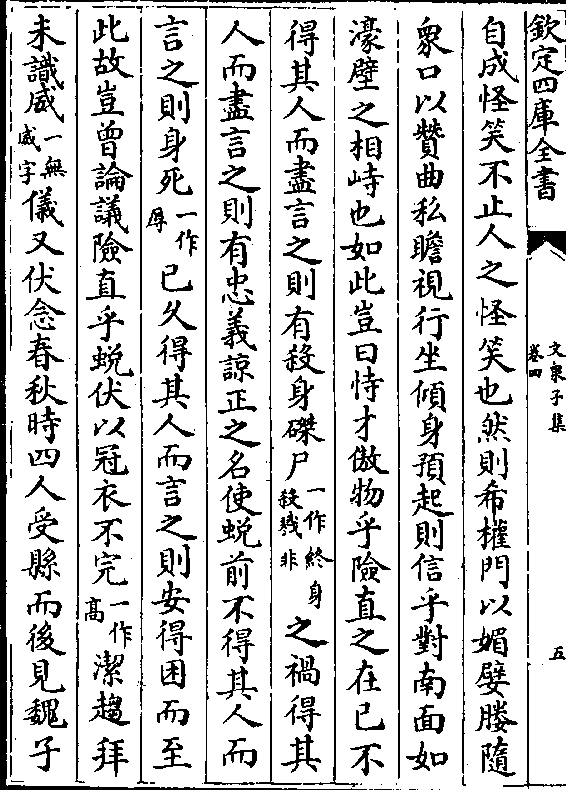 欽定四庫全書
文泉子集
卷四
五
自成怪笑不止人之怪笑也然則希權門以媚嬖媵隨
衆口以贊曲私瞻視行坐傾身預起則信乎對南面如
濠壁之相峙也如此豈曰恃才傲物乎險直之在已不
得其人而盡言之則有殺身磔尸一作終身殺戮非之禍得其
人而盡言之則有忠義諒正之名使蛻前不得其人而
言之則身死一作辱已久得其人而言之則安得困而至
此故豈曾論議險直乎蛻伏以冠衣不完一作高潔趨拜
未識威一無威字儀又伏念春秋時四人受縣而後見魏子